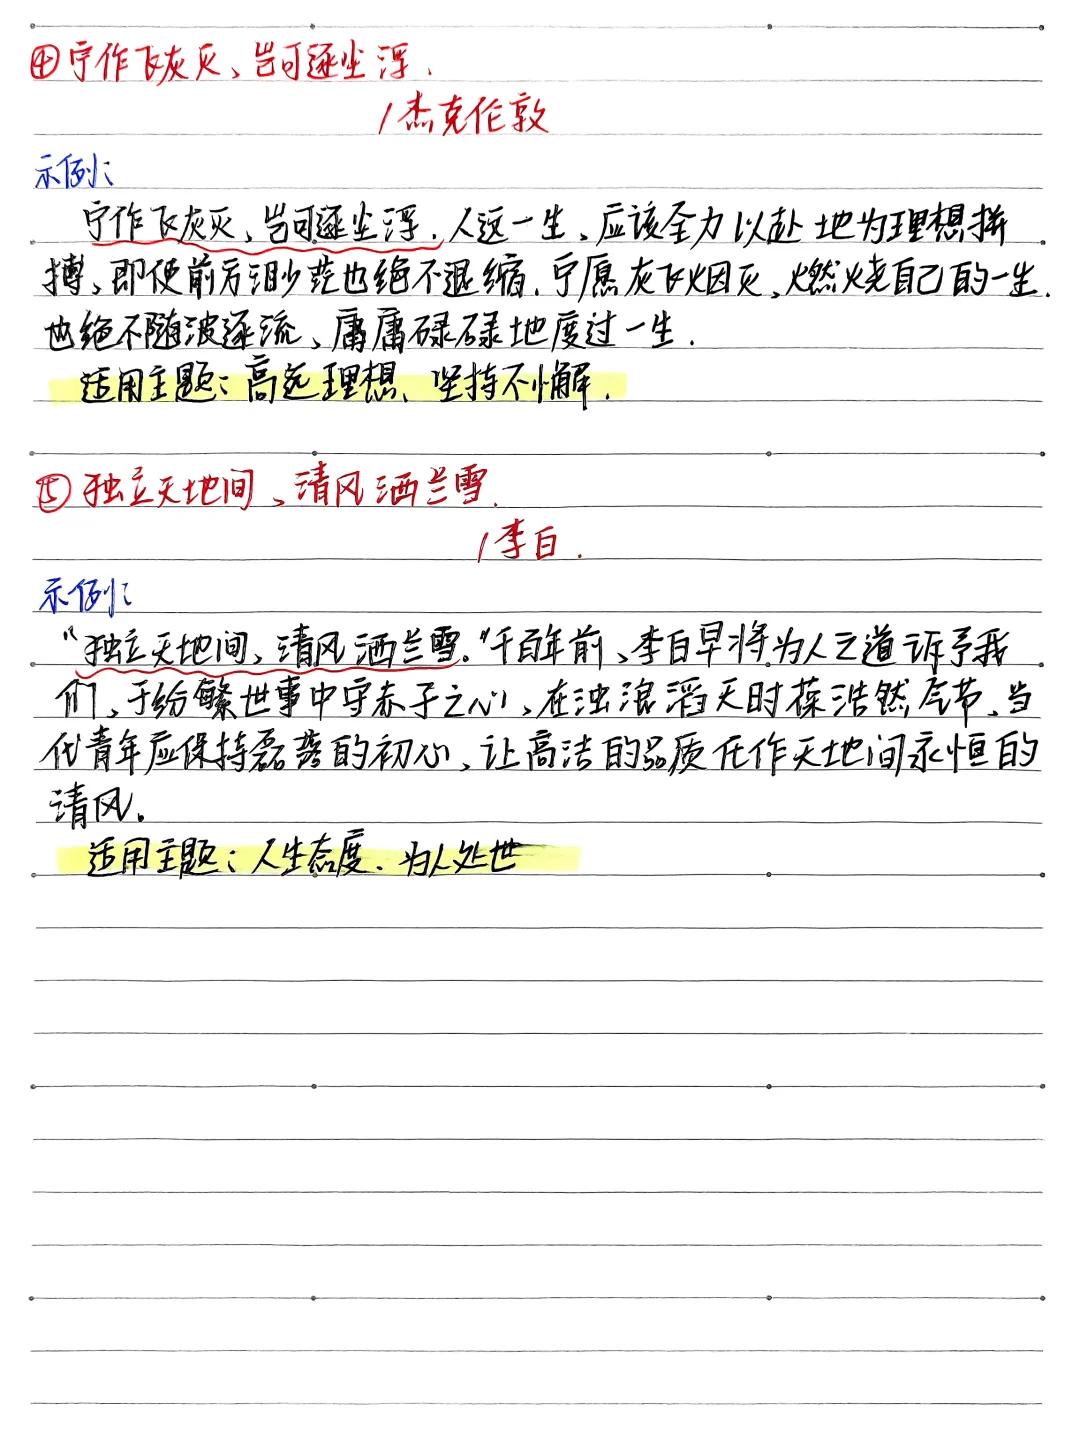 ④宁作飞灰灭、岂可逐尘浮.
/杰克伦敦
示例：
宁作飞灰灭、岂可逐尘浮.人这一生、应该全力以赴地为理想拼
搏、即使前方渺茫也绝不退缩.宁愿灰飞烟灭、燃烧自己的一生.
也绝不随波逐流、庸庸碌碌地度过一生.
适用主题：高远理想、坚持不懈.
⑤独立天地间、清风洒兰雪.
/李白.
示例：
“独立天地间、清风洒兰雪。”千百年前、李白早将为人之道诉予我
们、于纷繁世事中守赤子之心、在浊浪滔天时葆浩然气节、当
代青年应保持磊落的初心、让高洁的品质化作天地间永恒的
清风。
适用主题：人生态度、为人处世